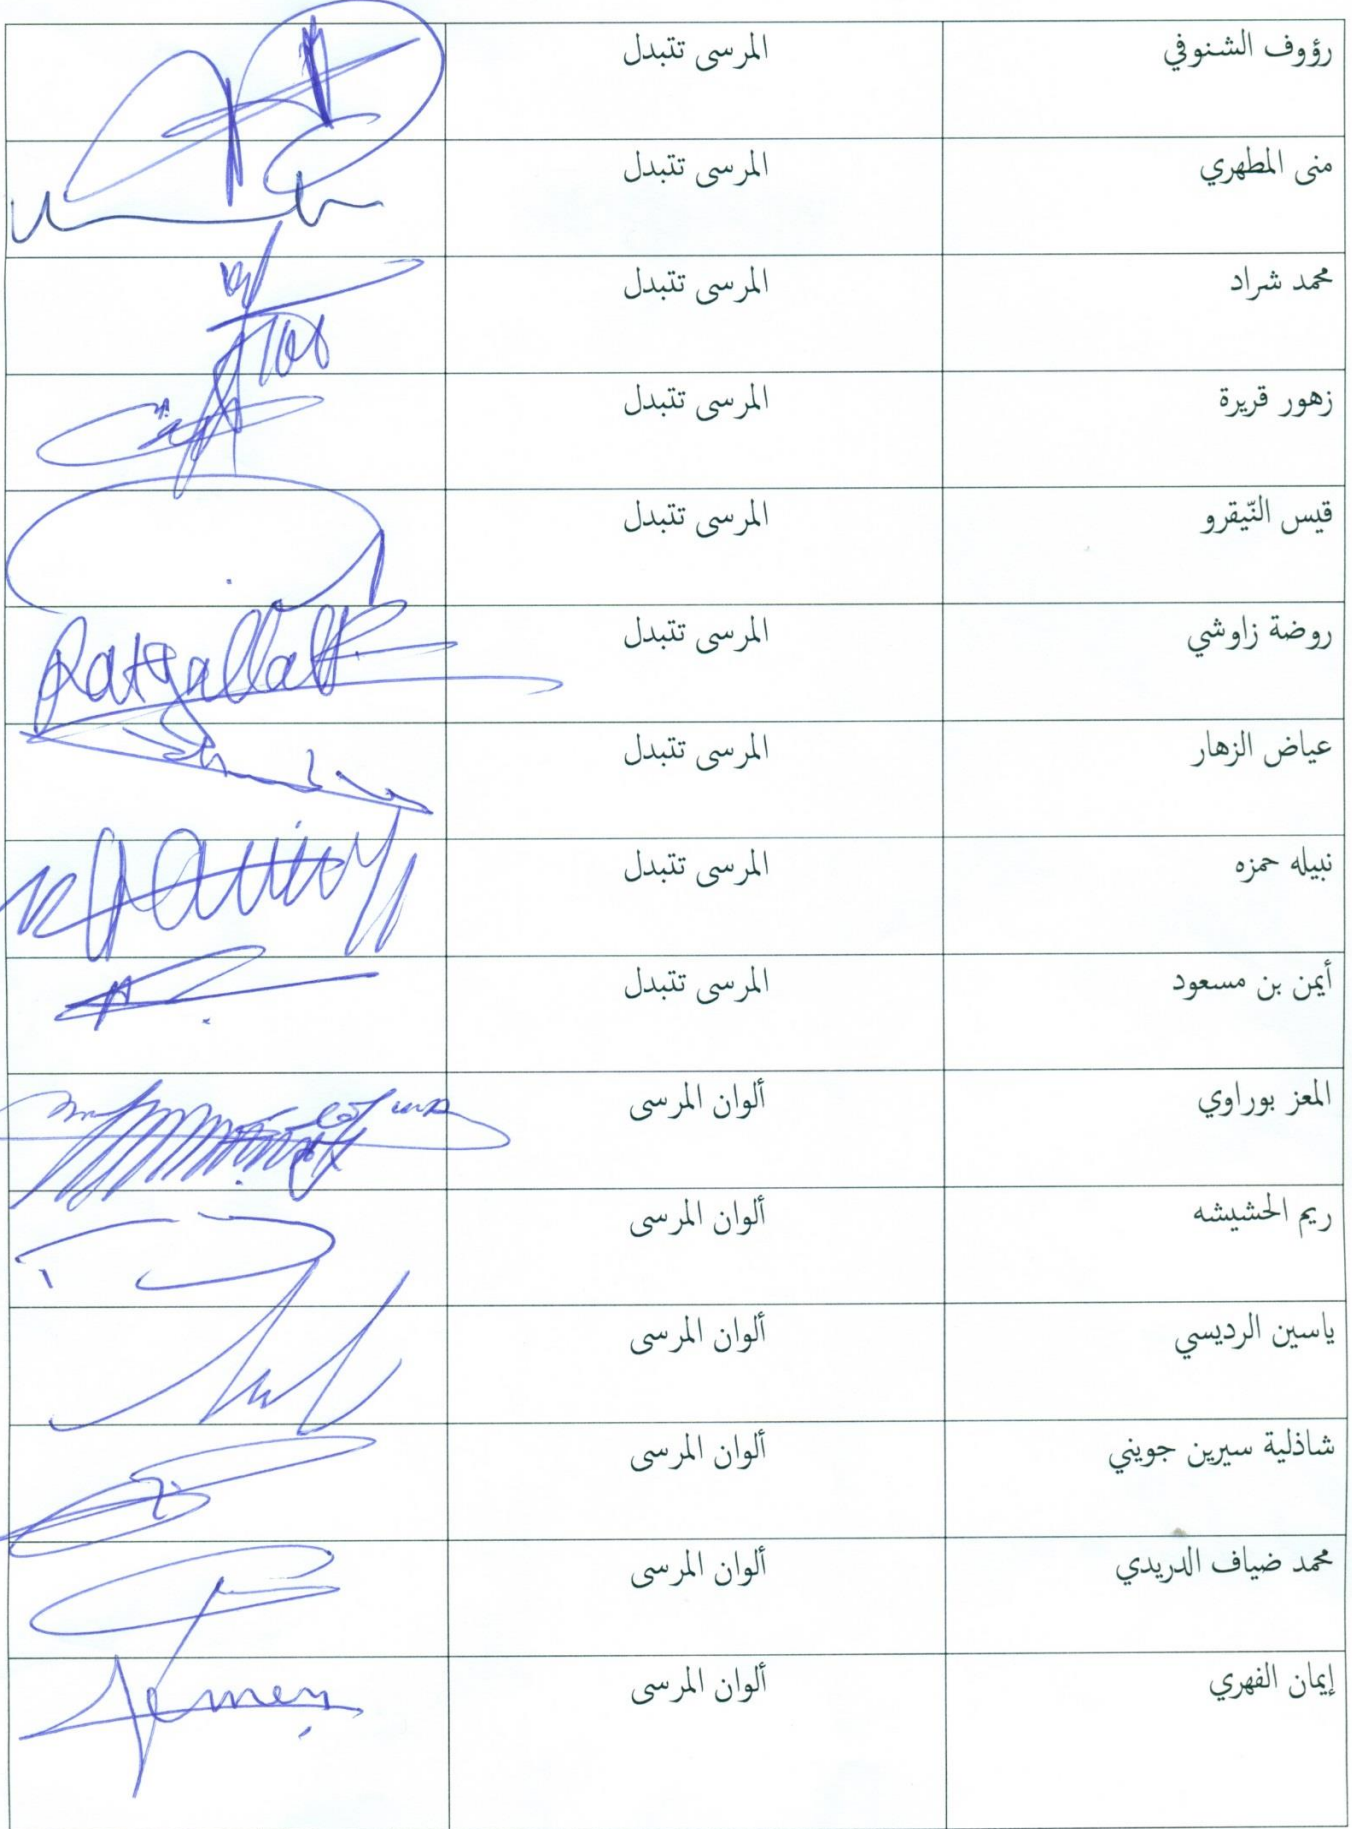 رؤوف الشنوفي المرسى تتبدل
منى المطهري المرسى تتبدل
محمد شراد المرسى تتبدل
زهور قريرة المرسى تتبدل
قيس النّيقرو المرسى تتبدل
روضة زاوشي المرسى تتبدل
عياض الزهار المرسى تتبدل
نبيله حمزه المرسى تتبدل
أيمن بن مسعود المرسى تتبدل
المعز بوراوي ألوان المرسى
ريم الحشيشه ألوان المرسى
ياسين الرديسي ألوان المرسى
شاذلية سيرين جويني ألوان المرسى
محمد ضياف الدريدي ألوان المرسى
إيمان الفهري ألوان المرسى